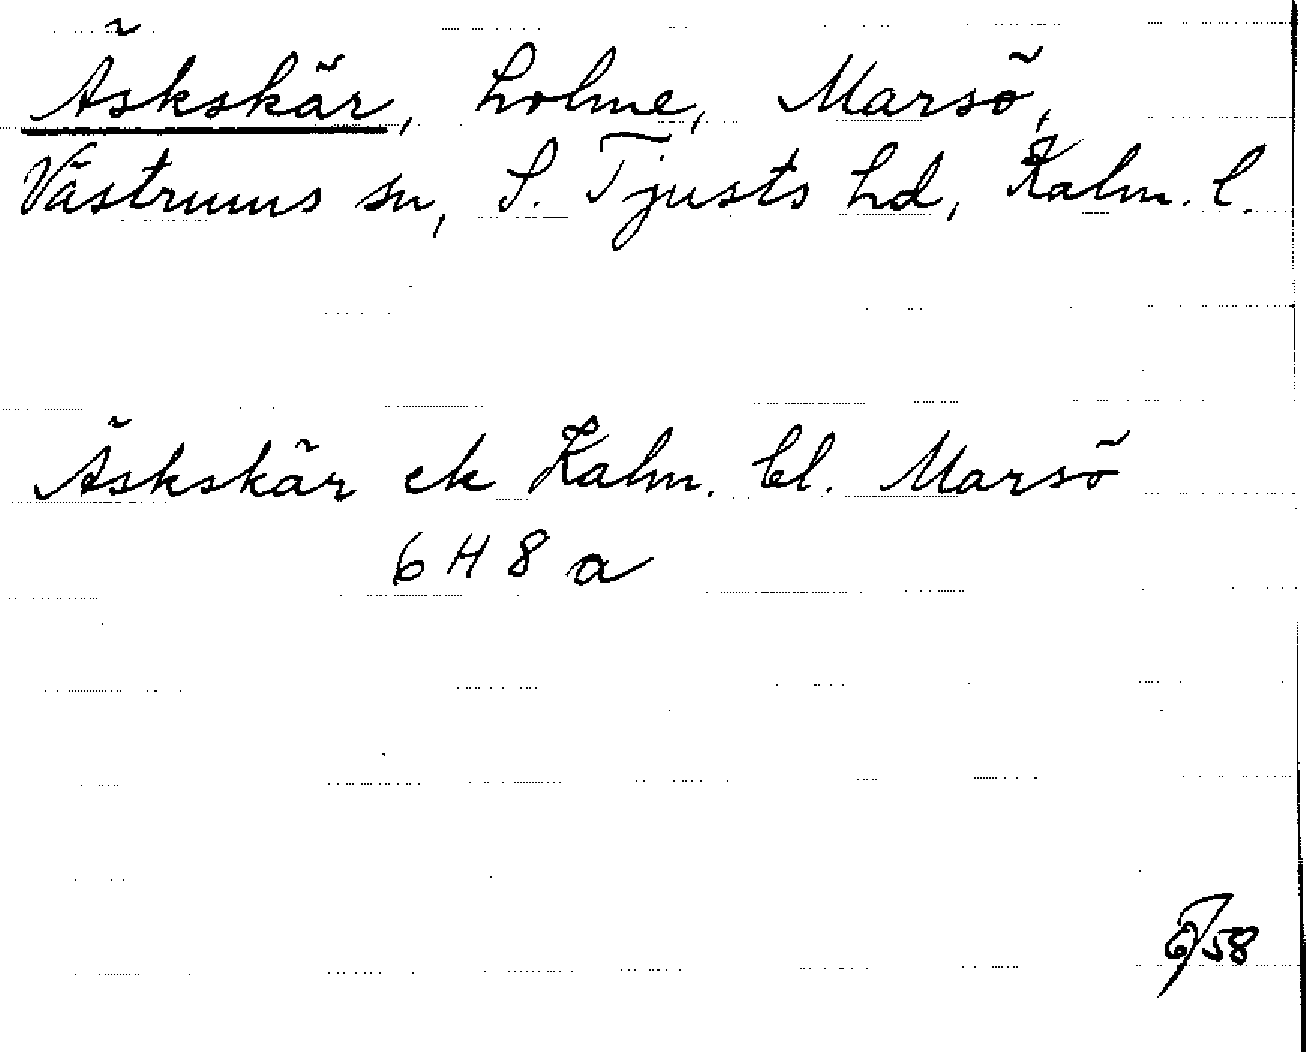 Äskskär, holme, Marsö,
Västrums sn, S. Tjusts hd, Kalm. l.
Äskskär ek Kalm. bl. Marsö
6 H 8 a
58